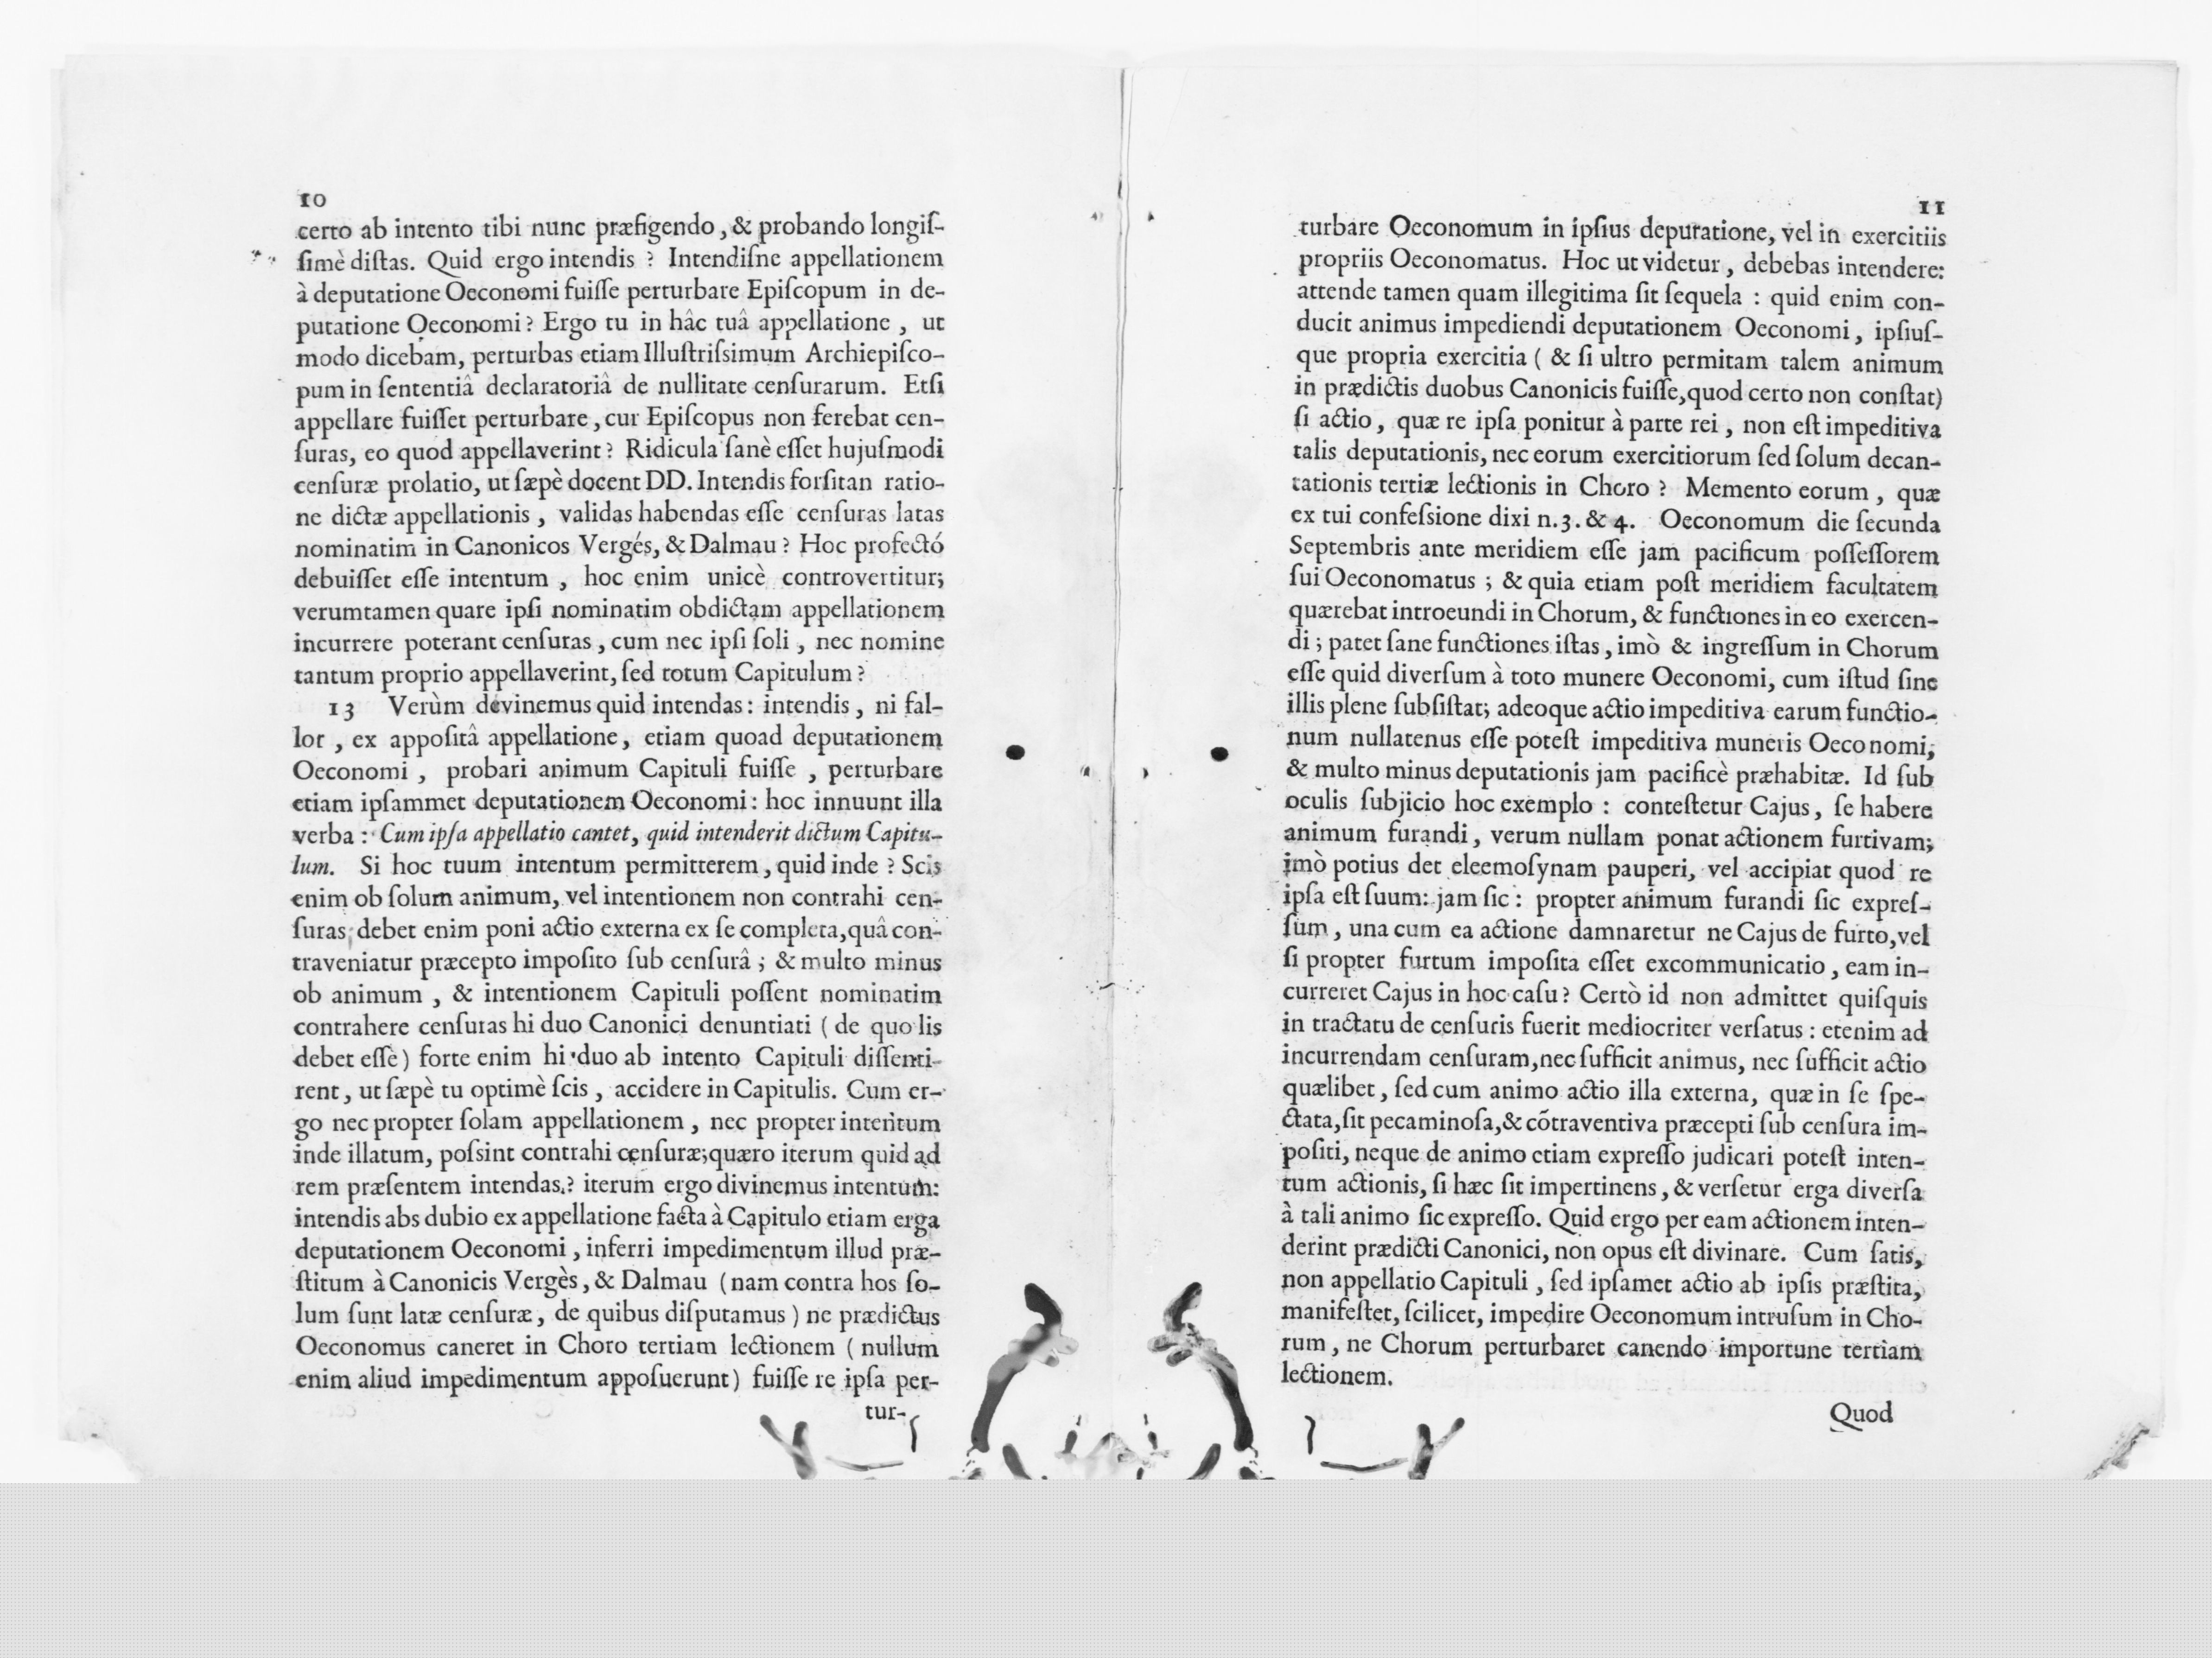 10
certo ab intento tibi nunc præfigendo, & probando longiſ-
ſimè diſtas. Quid ergo intendis ? Intendiſne appellationem
à deputatione Oeconomi fuiſſe perturbare Epiſcopum in de-
putatione Oeconomi ? Ergo tu in hâc tuâ appellatione , ut
modo dicebam, perturbas etiam Illuſtriſsimum Archiepiſco-
pum in ſententiâ declaratoriâ de nullitate cenſurarum. Etſi
appellare fuiſſet perturbare, cur Epiſcopus non ferebat cen-
ſuras, eo quod appellaverint ? Ridicula ſanè eſſet hujuſmodi
cenſuræ prolatio, ut ſæpè docent DD. Intendis forſitan ratio-
ne dictæ appellationis , validas habendas eſſe cenſuras latas
nominatim in Canonicos Vergés, & Dalmau ? Hoc profectó
debuiſſet eſſe intentum , hoc enim unicè controvertitur;
verumtamen quare ipſi nominatim obdictam appellationem
incurrere poterant cenſuras, cum nec ipſi ſoli , nec nomine
tantum proprio appellaverint, ſed totum Capitulum ?
13 Verùm devinemus quid intendas : intendis , ni fal-
lor , ex appoſitâ appellatione, etiam quoad deputationem
Oeconomi , probari animum Capituli fuiſſe , perturbare
etiam ipſammet deputationem Oeconomi : hoc innuunt illa
verba : Cum ipſa appellatio cantet, quid intenderit dictum Capitu-
lum. Si hoc tuum intentum permitterem, quid inde ? Scis
enim ob ſolum animum, vel intentionem non contrahi cen-
ſuras; debet enim poni actio externa ex ſe completa, quâ con-
traveniatur præcepto impoſito ſub cenſurâ ; & multo minus
ob animum , & intentionem Capituli poſſent nominatim
contrahere cenſuras hi duo Canonici denuntiati ( de quo lis
debet eſſe ) forte enim hi duo ab intento Capituli diſſenti-
rent, ut ſæpè tu optimè ſcis , accidere in Capitulis. Cum er-
go nec propter ſolam appellationem , nec propter intentum
inde illatum, poſsint contrahi cenſuræ; quæro iterum quid ad
rem præſentem intendas? iterum ergo divinemus intentum:
intendis abs dubio ex appellatione facta à Capitulo etiam erga
deputationem Oeconomi , inferri impedimentum illud præ-
ſtitum à Canonicis Vergès, & Dalmau ( nam contra hos ſo-
lum ſunt latæ cenſuræ, de quibus diſputamus ) ne prædictus
Oeconomus caneret in Choro tertiam lectionem ( nullum
enim aliud impedimentum appoſuerunt ) fuiſſe re ipſa per-
tur-
11
turbare Oeconomum in ipſius deputatione, vel in exercitiis
propriis Oeconomatus. Hoc ut videtur, debebas intendere:
attende tamen quam illegitima ſit ſequela : quid enim con-
ducit animus impediendi deputationem Oeconomi, ipſiuſ-
que propria exercitia ( & ſi ultro permitam talem animum
in prædictis duobus Canonicis fuiſſe, quod certo non conſtat)
ſi actio, quæ re ipſa ponitur à parte rei, non eſt impeditiva
talis deputationis, nec eorum exercitiorum ſed ſolum decan-
tationis tertiæ lectionis in Choro ? Memento eorum , quæ
ex tui confeſsione dixi n. 3. & 4. Oeconomum die ſecunda
Septembris ante meridiem eſſe jam pacificum poſſeſſorem
ſui Oeconomatus ; & quia etiam poſt meridiem facultatem
quærebat introeundi in Chorum, & functiones in eo exercen-
di ; patet ſane functiones iſtas, imò & ingreſſum in Chorum
eſſe quid diverſum à toto munere Oeconomi, cum iſtud ſine
illis plene ſubſiſtat; adeoque actio impeditiva earum functio-
num nullatenus eſſe poteſt impeditiva muneris Oeco nomi;
& multo minus deputationis jam pacificè præhabitæ. Id ſub
oculis ſubjicio hoc exemplo : conteſtetur Cajus, ſe habere
animum furandi , verum nullam ponat actionem furtivam;
imò potius det eleemoſynam pauperi, vel accipiat quod re
ipſa eſt ſuum: jam ſic : propter animum furandi ſic expreſ-
ſum, una cum ea actione damnaretur ne Cajus de furto, vel
ſi propter furtum impoſita eſſet excommunicatio, eam in-
curreret Cajus in hoc caſu ? Certò id non admittet quiſquis
in tractatu de cenſuris fuerit mediocriter verſatus : etenim ad
incurrendam cenſuram, nec ſufficit animus, nec ſufficit actio
quælibet, ſed cum animo actio illa externa, quæ in ſe ſpe-
ctata, ſit pecaminoſa, & cõtraventiva præcepti ſub cenſura im-
poſiti, neque de animo etiam expreſſo judicari poteſt inten-
tum actionis, ſi hæc ſit impertinens, & verſetur erga diverſa
à tali animo ſic expreſſo. Quid ergo per eam actionem inten-
derint prædicti Canonici, non opus eſt divinare. Cum ſatis,
non appellatio Capituli , ſed ipſamet actio ab ipſis præſtita,
manifeſtet, ſcilicet, impedire Oeconomum intruſum in Cho-
rum, ne Chorum perturbaret canendo importune tertiam
lectionem.
Quod